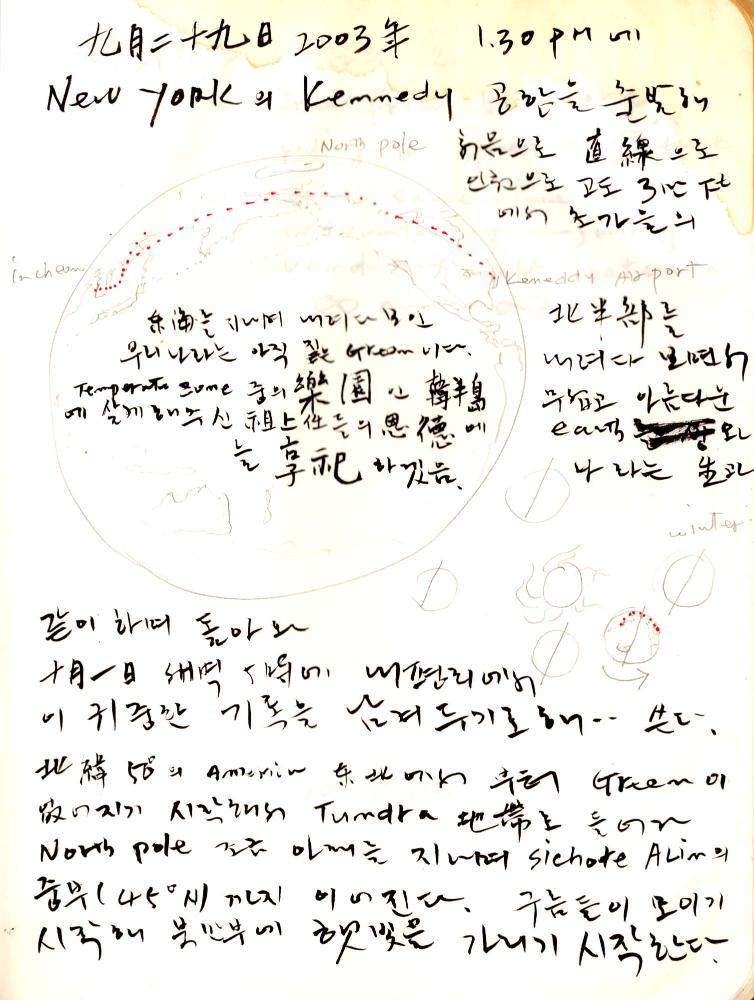 九月二十九日 2003年 1.30 PM에
New York의 Kennedy 공항을 출발해
North pole
처음으로 直線으로
인천으로 고도 3만 Ft
에서 초가을의
incheon
Keneddy Airport
北半部를
내려다 보면서
무섭고 아름다운
earth 와
나라는 生과
東海를 지나며 내려다 보인
우리나라는 아직 짙은 Green이다.
Temperate zone 중의 樂園인 韓半島
에 살게 해주신 祖上任들의 恩德에
늘 享祀하겠음.
winter
같이 하며 돌아와
十月一日 새벽 5時에 내편리에서
이 귀중한 기록을 남겨 두기로 해.. 쓴다.
北緯 50°의 America 东北에서 부터 Green이
없어지기 시작해서 Tundra 地帶로 들어가
North pole 조금 아래를 지나며 Sichote Alin의
중부(45°N)까지 이어진다. 구름들이 모이기
시작해 북반부에 햇빛을 가리기 시작한다.